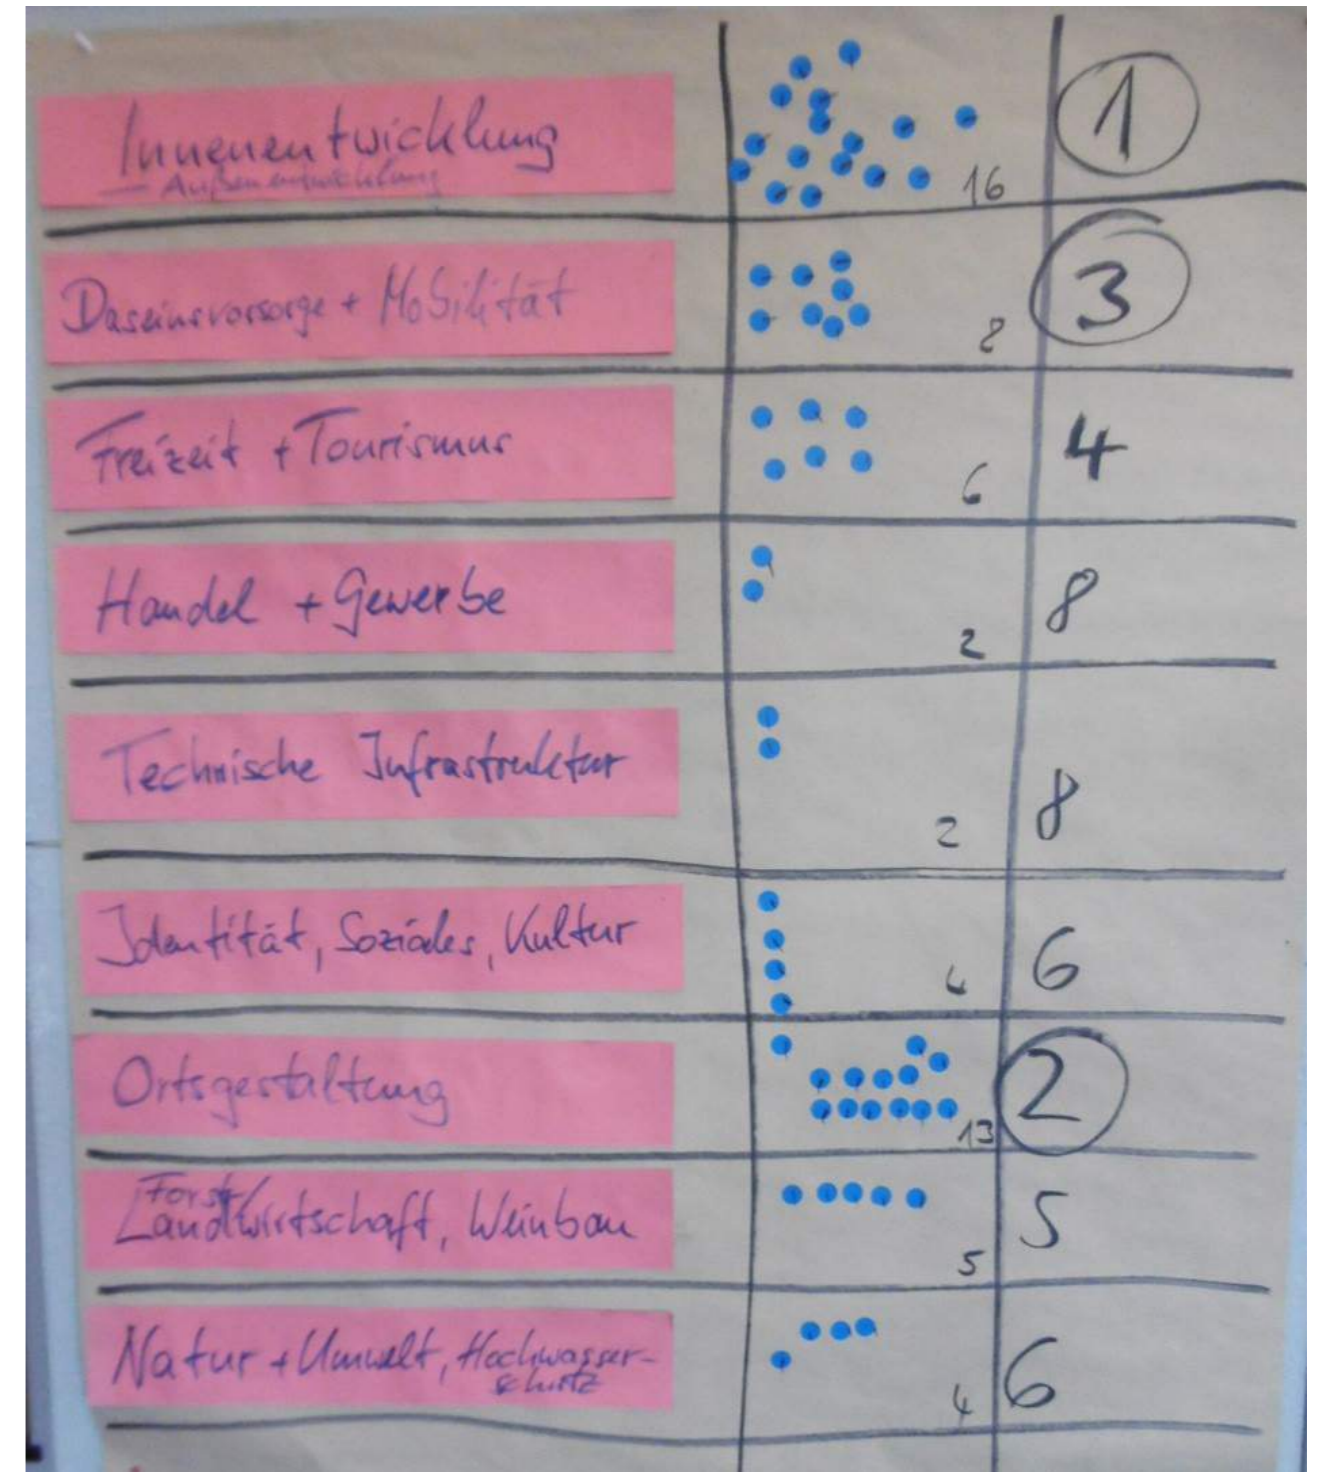 Innenentwicklung
— Außenentwicklung
16
1
Daseinsvorsorge + Mobilität
8
3
Freizeit + Tourismus
6
4
Handel + Gewerbe
2
8
Technische Infrastruktur
2
8
Identität, Soziales, Kultur
4
6
Ortsgestaltung
13
2
Forst/
Landwirtschaft, Weinbau
5
5
Natur + Umwelt, Hochwasser-
schutz
4
6